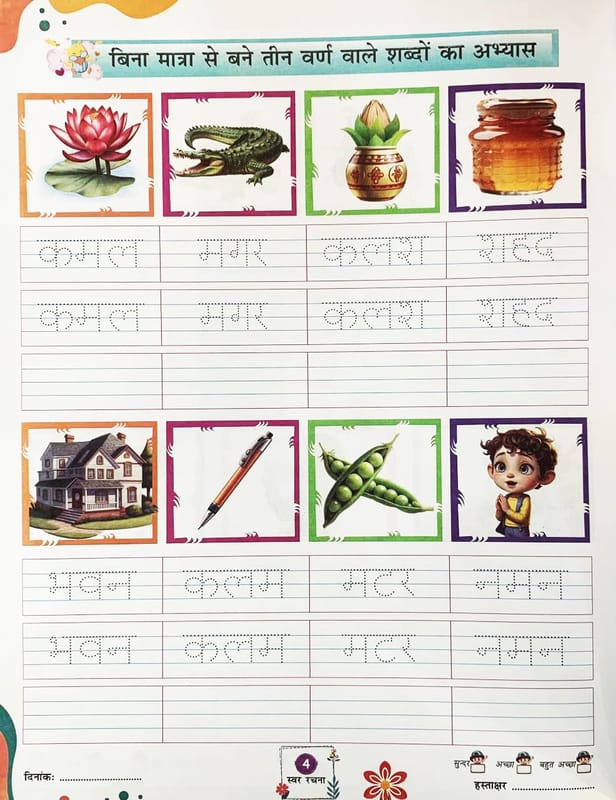 बिना मात्रा से बने तीन वर्ण वाले शब्दों का अभ्यास
कमल मगर कलश शहद
कमल मगर कलश शहद
भवन कलम मटर नमन
भवन कलम मटर नमन
दिनांकः ........................
4
स्वर रचना
सुन्दर अच्छा बहुत अच्छा
हस्ताक्षर ........................